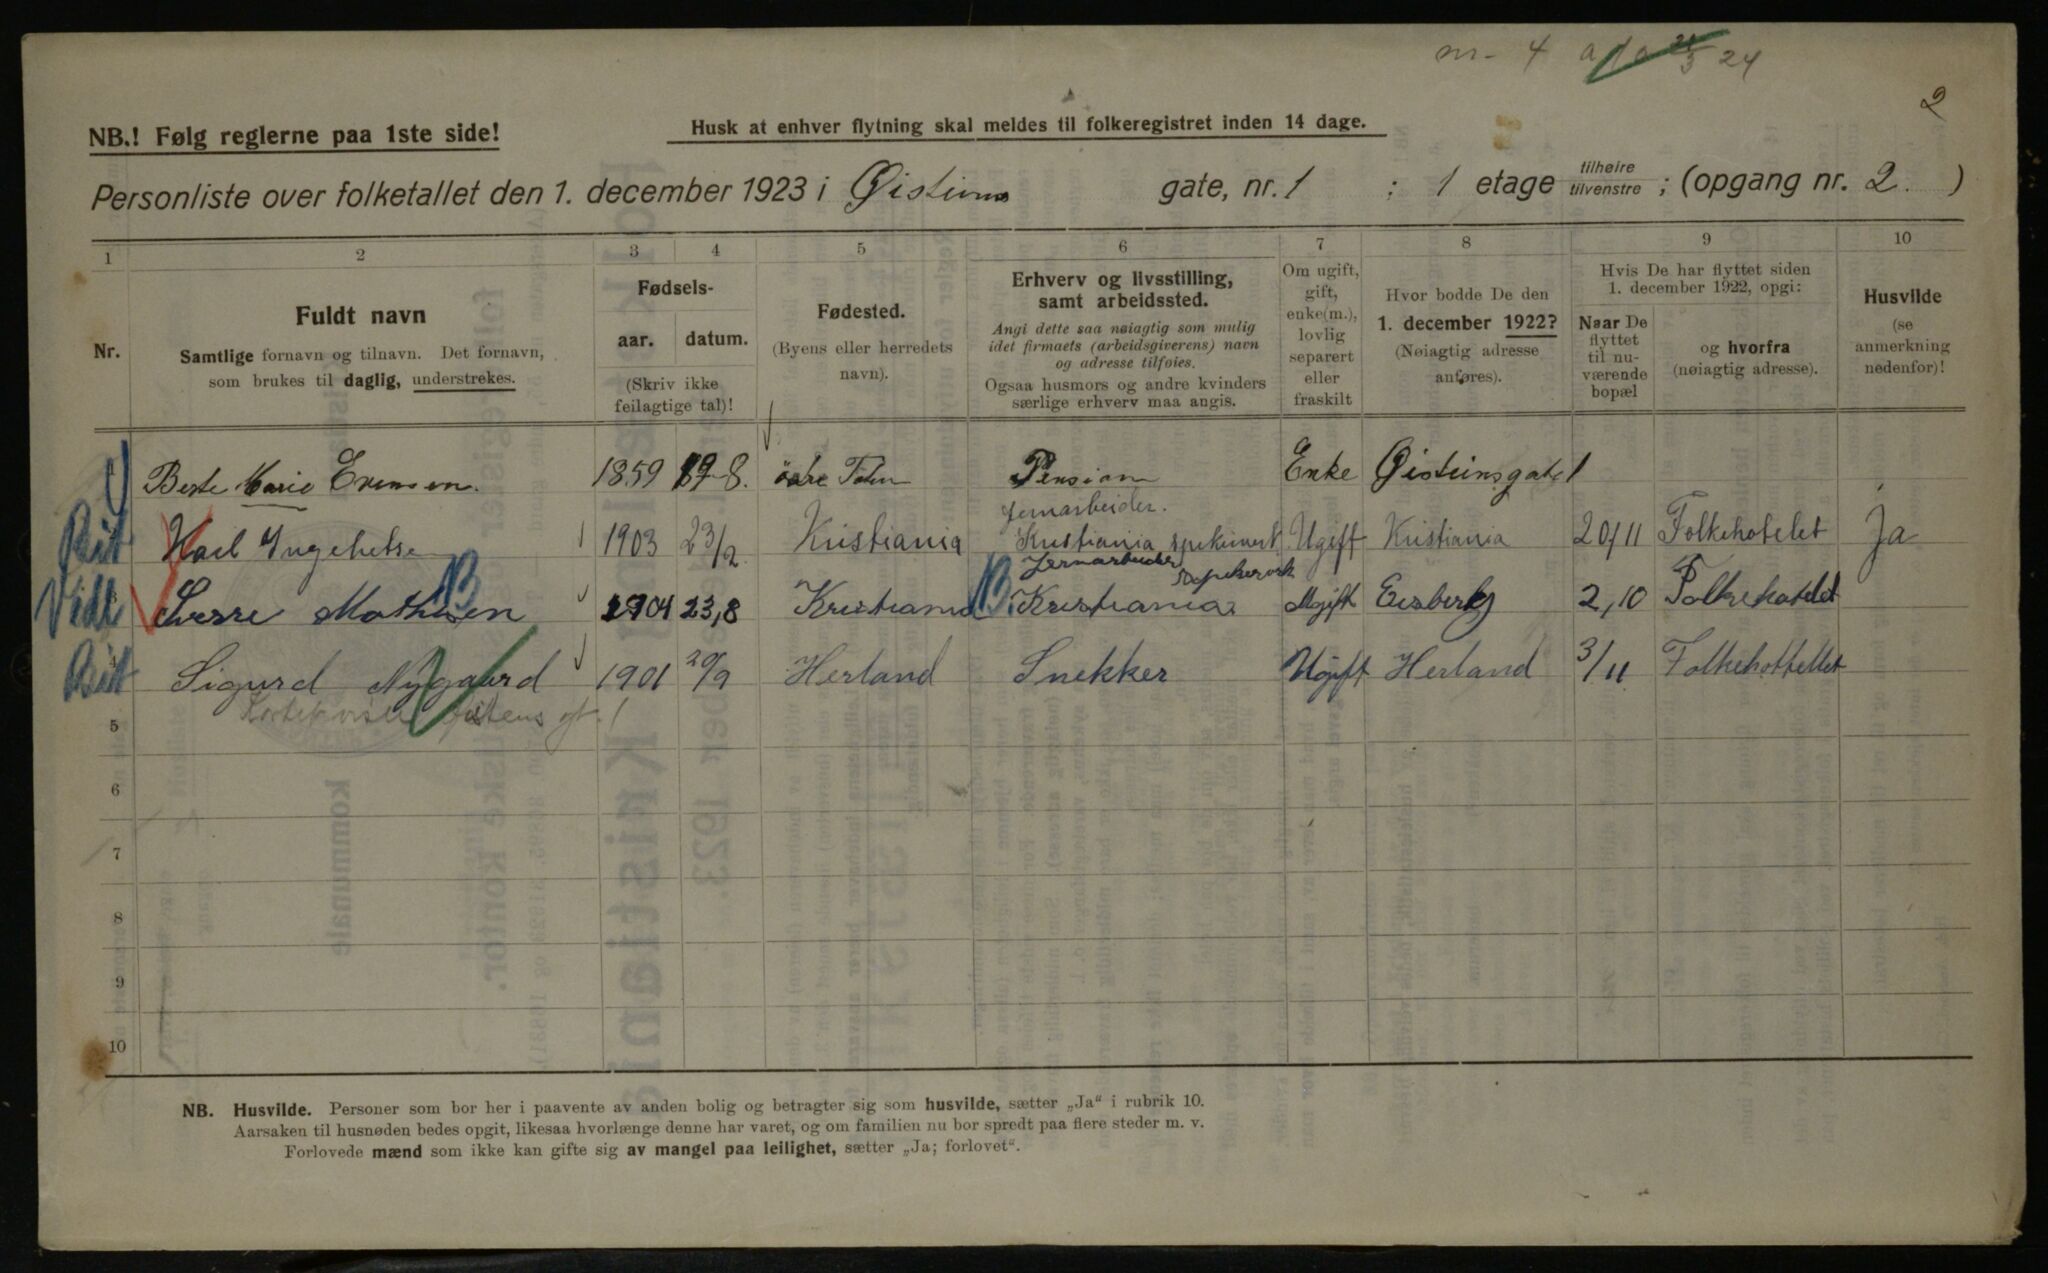 nr. 4
24
2
NB.! Følg reglerne paa 1ste side!
Husk at enhver flytning skal meldes til folkeregistret inden 14 dage.
Personliste over folketallet den 1. december 1923 i Øisteins gate, nr. 1 ; 1 etage tilhøire tilvenstre ; (opgang nr. 2. )
1 2 3 4 5 6 7 8 9 10
Nr.
Fuldt navn
Samtlige fornavn og tilnavn. Det fornavn,
som brukes til daglig, understrekes.
Fødsels-
aar. datum.
(Skriv ikke
feilagtige tal)!
Fødested.
(Byens eller herredets
navn).
Erhverv og livsstilling,
samt arbeidssted.
Angi dette saa nøiagtig som mulig
idet firmaets (arbeidsgiverens) navn
og adresse tilføies.
Ogsaa husmors og andre kvinders
særlige erhverv maa angis.
Om ugift,
gift,
enke(m.),
lovlig
separert
eller
fraskilt
Hvor bodde De den
1. december 1922?
(Nøiagtig adresse
anføres).
Hvis De har flyttet siden
1. december 1922, opgi:
Naar De
flyttet
til nu-
værende
bopæl
og hvorfra
(nøiagtig adresse).
Husvilde
(se
anmerkning
nedenfor)!
Marie Evensen. 1859 19-8. Pension Enke Øisteinsgate 1
Jernarbeider.
Bit Karl 1903 23/2 Kristiania Kristiania Ugift Kristiania 20/11 Folkehotelet Ja
Jernarbeider
Sverre Mathisen 1904 23,8 Kristiania Kristiania Ugift 2,10 Folkehotelet
Bit Sigurd Nygaard 1901 20/9 Herland Snekker Ugift Herland 3/11 Folkehottellet
5
6
7
8
9
10
NB. Husvilde. Personer som bor her i paavente av anden bolig og betragter sig som husvilde, sætter „Ja“ i rubrik 10.
Aarsaken til husnøden bedes opgit, likesaa hvorlænge denne har varet, og om familien nu bor spredt paa flere steder m. v.
Forlovede mænd som ikke kan gifte sig av mangel paa leilighet, sætter „Ja; forlovet“.